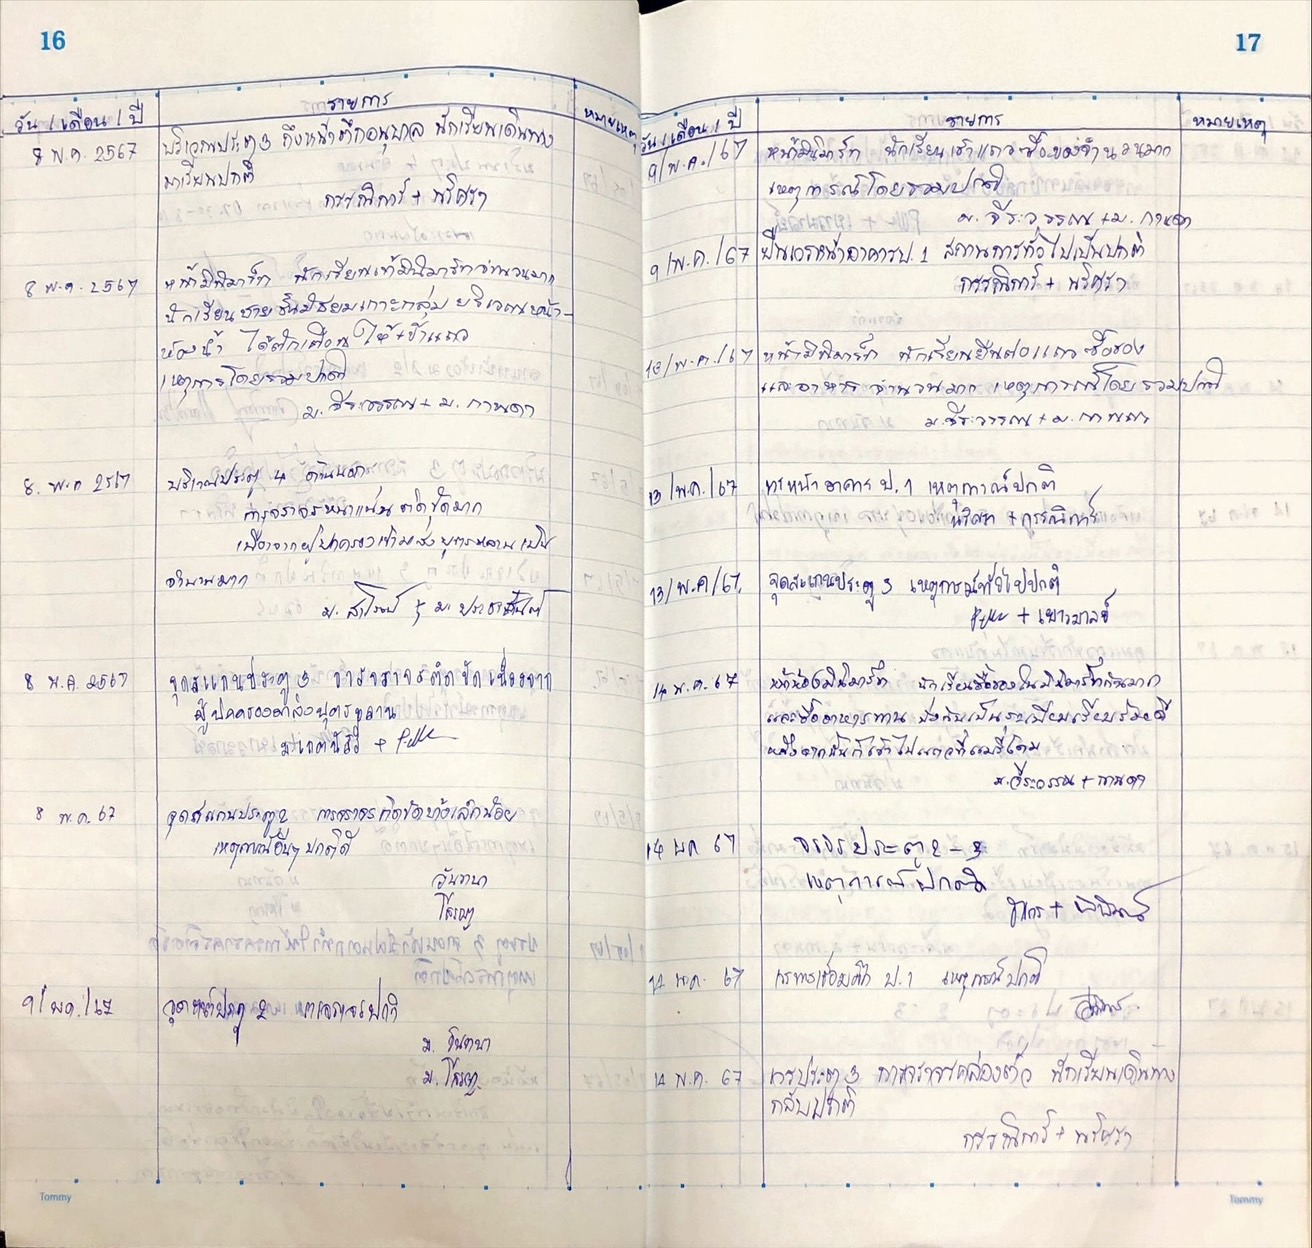 16
วัน / เดือน / ปี
รายการ
หมายเหตุ
8 พ.ค. 2567
บริเวณประตู 3 ถึงหน้าตึกอนุบาล นักเรียนเดินทาง
มาเรียนปกติ
กรรณิการ์ + นริศรา
8 พ.ค. 2567
หน้ามินิมาร์ท นักเรียนเข้ามินิมาร์ทจำนวนมาก
นักเรียนชายชั้นมัธยมเกาะกลุ่ม บริเวณหน้า-
ห้องน้ำ ได้ตักเตือน ให้เข้าแถว
เหตุการโดยรวมปกติ
ม. จีระวรรณ + ม. กานดา
8. พ.ค 2567
บริเวณประตู 4
การจราจรหนาแน่น ติดขัดมาก
เนื่องจากผู้ปกครองเข้ามาส่งบุตรหลานเป็น
จำนวนมาก
8 พ.ค. 2567
จุดสแกนประตู 3 การจราจรติดขัดเนื่องจาก
ผู้ปกครองมาส่งบุตรหลาน
8 พ.ค. 67
จุดสแกนประตู 2 การจราจรติดขัดบ้างเล็กน้อย
เหตุการณ์อื่นๆ ปกติดี
วันทนา
9/ พ.ค./67
ม. วันทนา
Tommy
17
วัน / เดือน / ปี
รายการ
หมายเหตุ
9/พ.ค./67
หน้ามินิมาร์ท นักเรียนเข้าแถวซื้อของจำนวนมาก
เหตุการณ์โดยรวมปกติ
ม. จีระวรรณ + ม. กานดา
9/พ.ค./67
ยืนเวรหน้าอาคาร ป.1 สถานการทั่วไปเป็นปกติ
กรรณิการ์ + นริศรา
13/พ.ค./67
หน้ามินิมาร์ท นักเรียนยืนต่อแถว ซื้อของ
และอาหาร จำนวนมาก เหตุการณ์โดยรวมปกติ
ม.จีระวรรณ + ม. กานดา
13/พ.ค./67
เวรหน้าอาคาร ป.1 เหตุการณ์ปกติ
นริศรา + กรรณิการ์
13/พ.ค/67.
จุดสแกนประตู 3 เหตุการณ์ทั่วไปปกติ
+ เยาวมาลย์
14 พ.ค. 67
หน้าห้องมินิมาร์ท นักเรียนซื้อของในมินิมาร์ทจำนวนมาก
และซื้ออาหารทาน
ม.จีระวรรณ + กานดา
14 พ.ค 67
จราจรประตู 2 - 3
เหตุการณ์ปกติ
14 พ.ค. 67
ป.1 เหตุการณ์ปกติ
14 พ.ค. 67
เวรประตู 3 การจราจรคล่องตัว นักเรียนเดินทาง
กลับปกติ
กรรณิการ์ + นริศรา
Tommy